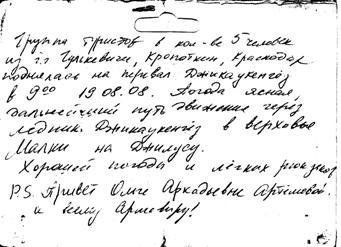 Группа туристов в кол-ве 5 человек
из г.г Гулькевичи, Кропоткин, Краснодар
поднялась на перевал Джикаугенгёз
в 9⁰⁰ 19.08.08. Погода ясная,
дальнейший путь движения через
ледник Джикаугенгёз в верховье
Малки на Джилусу.
Хорошей погоды и лёгких рюкзаков
P.S. Привет Ольге Аркадьевне Артёмовой
и всему Армавиру!